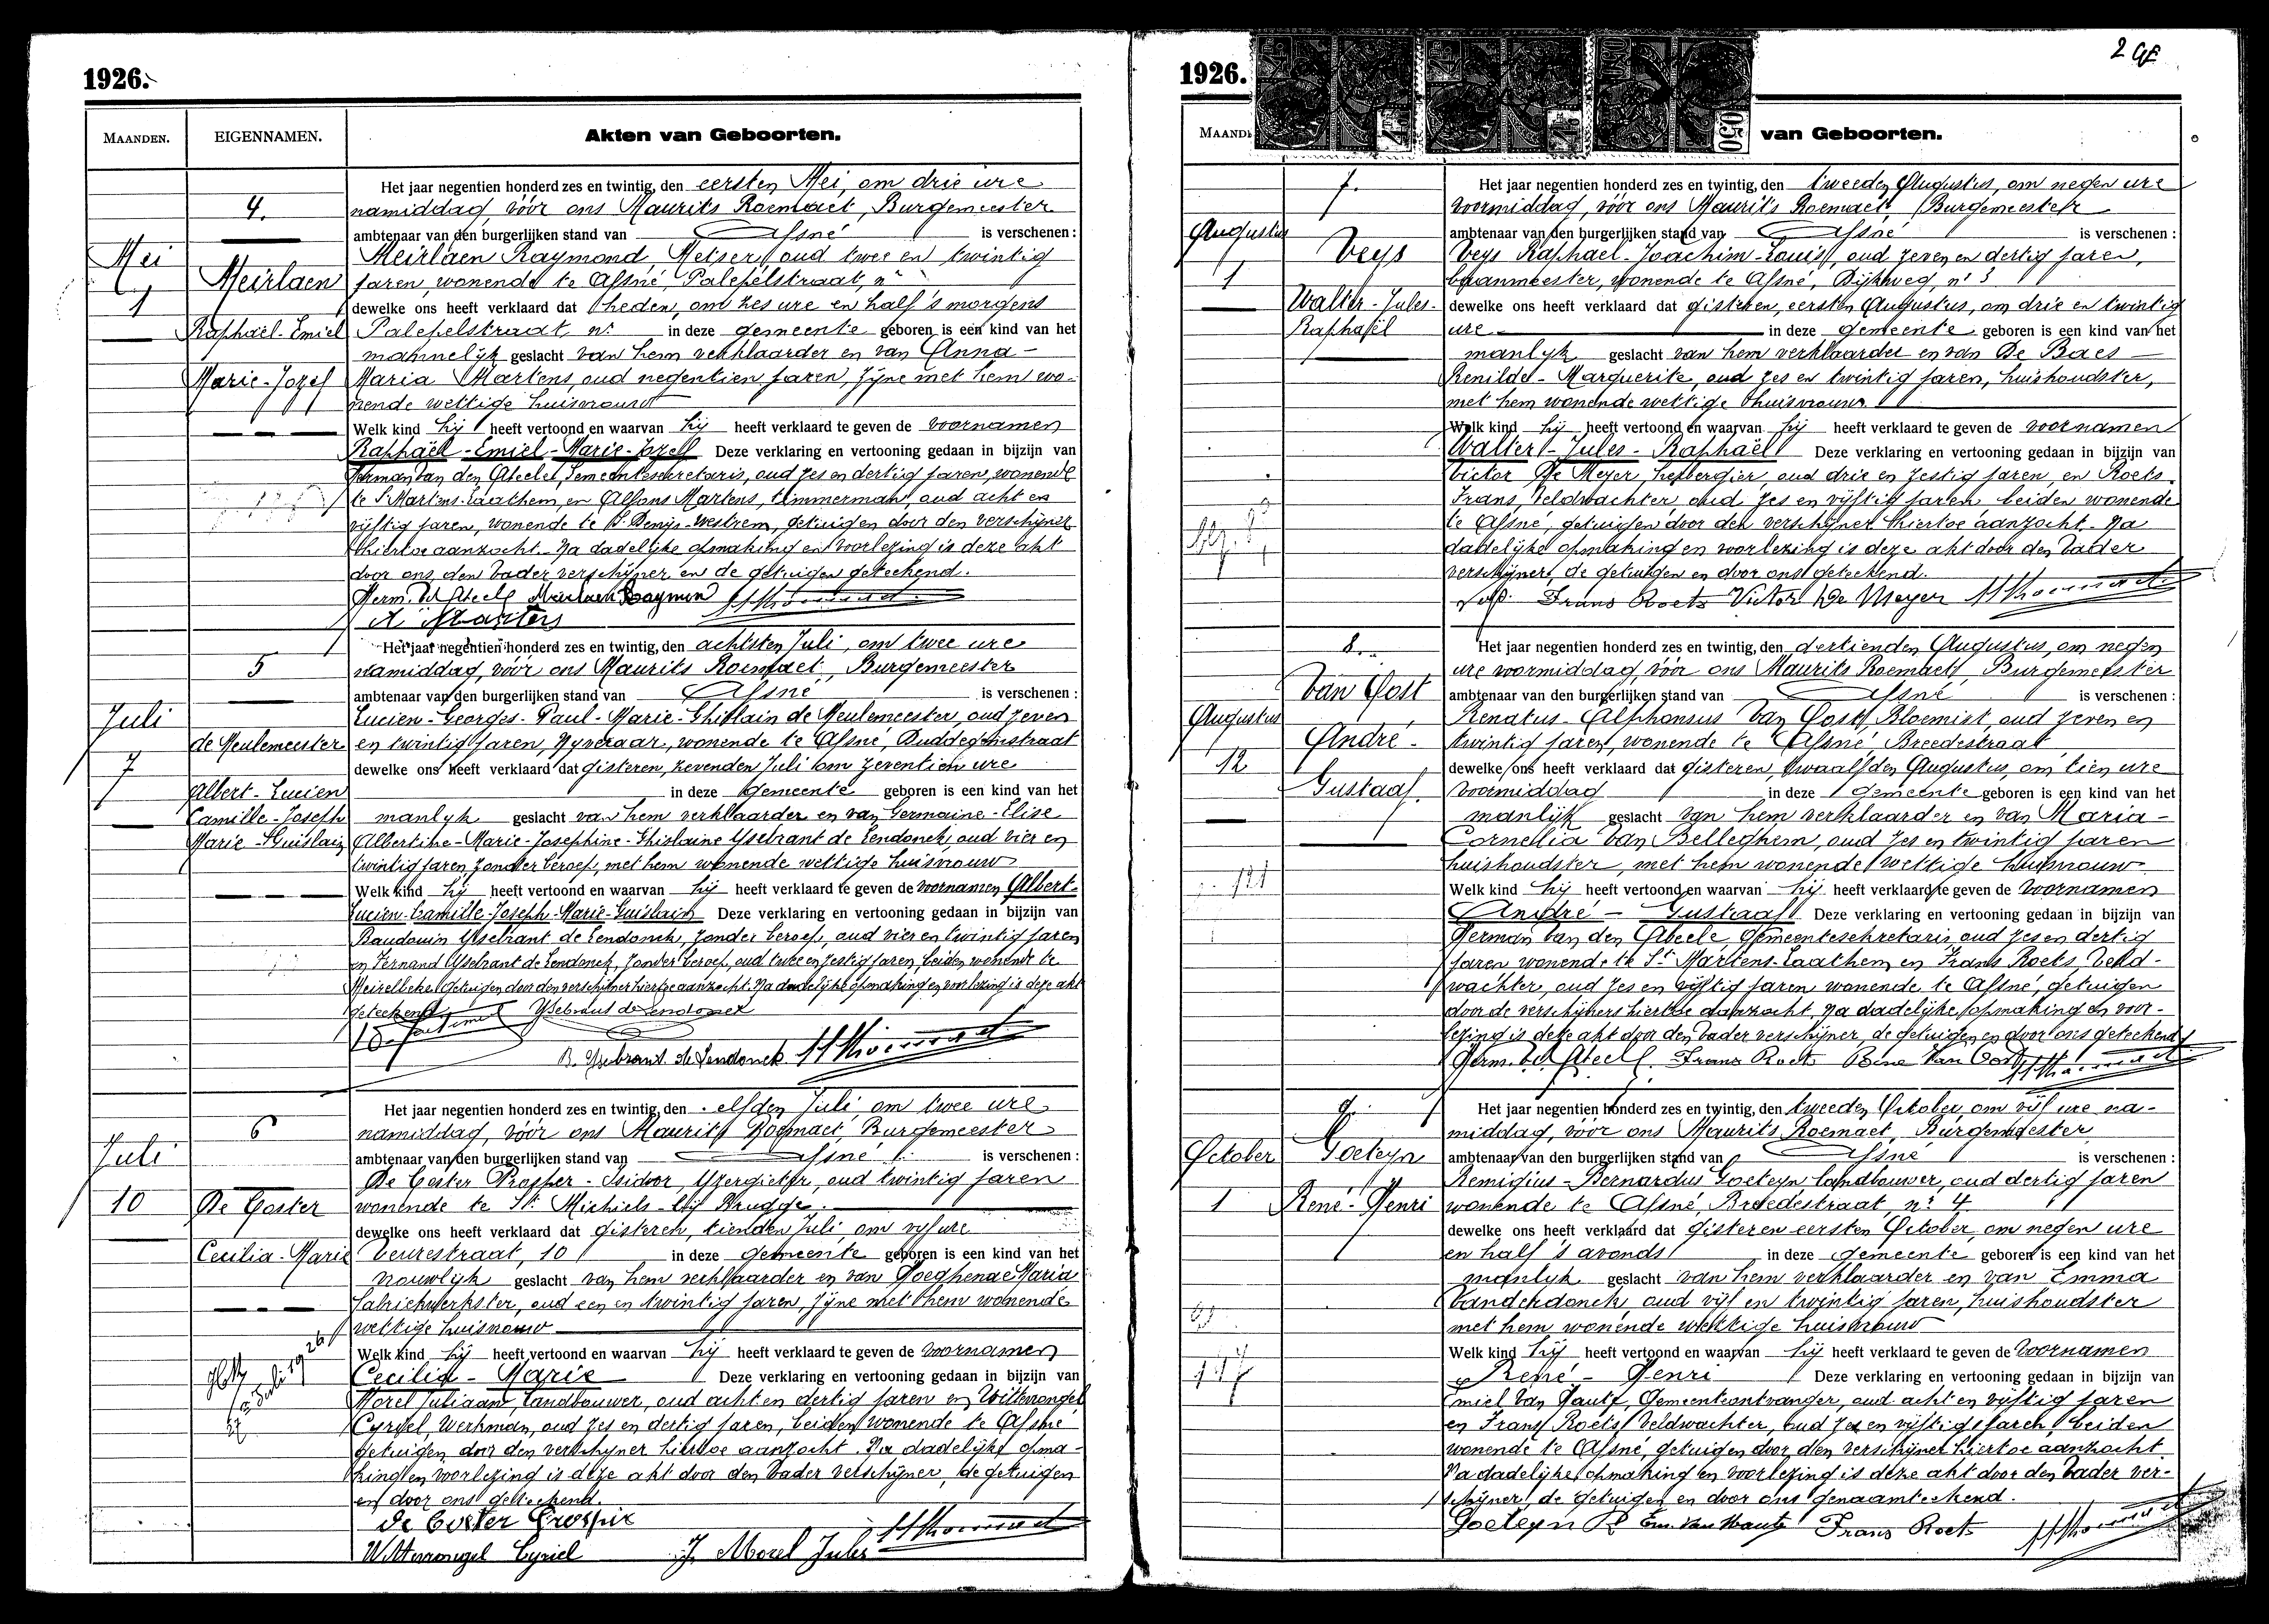 1926.
MAANDEN.
EIGENNAMEN.
Akten van Geboorten.
4.
Mei
1
Meirlaen
Raphaël-Emiel
Marie-Jozef
Het jaar negentien honderd zes en twintig, den eersten Mei, om drie ure
namiddag, vóór ons Maurits Roemaet, Burgemeester
ambtenaar van den burgerlijken stand van Afsné is verschenen :
Meirlaen Raymond, Metser, oud twee en twintig
jaren, wonende te Afsné, Palepelstraat, nr
dewelke ons heeft verklaard dat heden, om zes ure en half 's morgens
Palepelstraat, nr in deze gemeente geboren is een kind van het
mannelijk geslacht van hem verklaarder en van Anna-
Maria Martens, oud negentien jaren, zijne met hem wo-
nende wettige huisvrouw
Welk kind hij heeft vertoond en waarvan hij heeft verklaard te geven de voornamen
Raphaël-Emiel-Marie-Jozef Deze verklaring en vertooning gedaan in bijzijn van
Herman Van den Abeele, Gemeentesecretaris, oud zes en dertig jaren, wonende
te St Martens-Laathem, en Alfons Martens, timmerman, oud acht en
vijftig jaren, wonende te St Denijs-Westrem, getuigen door den verschijner
hiertoe aanzocht. Na dadelijke opmaking en voorlezing is deze akt
door ons, den vader verschijner en de getuigen geteekend.
Herm. Vd Abeele Meirlaen Raymon
A Martens
5
Juli
7
de Meulemeester
Albert-Lucien
Camille-Joseph
Marie-Guislain
Het jaar negentien honderd zes en twintig, den achtsten Juli, om twee ure
namiddag, vóór ons Maurits Roemaet, Burgemeester
ambtenaar van den burgerlijken stand van Afsné is verschenen :
Lucien-Georges-Paul-Marie-Ghislain de Meulemeester, oud zeven
en twintig jaren, Nyveraar, wonende te Afsné, Duddegemstraat
dewelke ons heeft verklaard dat gisteren, zevenden Juli om zeventien ure
in deze gemeente geboren is een kind van het
manlyk geslacht van hem verklaarder en van Germaine-Elise
Albertine-Marie-Josephine-Ghislaine Ysebrant de Lendonck, oud vier en
twintig jaren, zonder beroep, met hem wonende wettige huisvrouw
Welk kind hij heeft vertoond en waarvan hij heeft verklaard te geven de voornamen Albert-
Lucien-Camille-Joseph-Marie-Guislain Deze verklaring en vertooning gedaan in bijzijn van
Baudouin Ysebrant de Lendonck, zonder beroep, oud vier en twintig jaren
en Fernand Ysebrant de Lendonck, zonder beroep, oud twee en zestig jaren, beiden wonende te
Meirelbeke, getuigen door den verschijner hiertoe aanzocht. Na dadelijke opmaking en voorlezing is deze akt
geteekend
Ysebrant de Lendonck
B. Ysebrant de Lendonck
6
Juli
10
De Coster
Cecilia-Marie
Het jaar negentien honderd zes en twintig, den elfden Juli, om twee ure
namiddag, vóór ons Maurits Roemaet, Burgemeester
ambtenaar van den burgerlijken stand van Afsné is verschenen :
De Coster Prosper-Isidoor, Yzergieter, oud twintig jaren
wonende te St Michiels-bij Brugge.
dewelke ons heeft verklaard dat gisteren, tienden Juli, om vyf ure
Veurestraat, 10 in deze gemeente geboren is een kind van het
vrouwlyk geslacht van hem verklaarder en van Maria
fabriekwerkster, oud een en twintig jaren, zijne met hem wonende
wettige huisvrouw
Welk kind hij heeft vertoond en waarvan hij heeft verklaard te geven de voornamen
Cecilia-Marie Deze verklaring en vertooning gedaan in bijzijn van
Morel Juliaan, Landbouwer, oud acht en dertig jaren en Wittevrongel
Cyriel, Werkman, oud zes en dertig jaren, beiden wonende te Afsné
getuigen door den verschijner hiertoe aanzocht. Na dadelijke opma-
king en voorlezing is deze akt door den vader verschijner, de getuigen
en door ons geteekend.
De Coster Prosper
Wittevrongel Cyriel J. Morel Jules
1926.
2
van Geboorten.
7.
Augustus
1
Veys
Walter-Jules-
Raphaël
Het jaar negentien honderd zes en twintig, den tweeden Augustus, om negen ure
voormiddag, vóór ons Maurits Roemaet, Burgemeester
ambtenaar van den burgerlijken stand van Afsné is verschenen :
Veys Raphael-Joachim-Louis, oud zeven en dertig jaren,
baanmeester, wonende te Afsné, Dijkweg, nr 3
dewelke ons heeft verklaard dat gisteren, eersten Augustus, om drie en twintig
ure in deze gemeente geboren is een kind van het
manlyk geslacht van hem verklaarder en van De Baes
Renilde-Marguerite, oud zes en twintig jaren, huishoudster,
met hem wonende wettige huisvrouw.
Welk kind hij heeft vertoond en waarvan hij heeft verklaard te geven de voornamen
Walter-Jules-Raphaël Deze verklaring en vertooning gedaan in bijzijn van
Victor De Meyer, herbergier, oud drie en zestig jaren, en Roets
Frans, Veldwachter, oud zes en vijftig jaren, beiden wonende
te Afsné, getuigen door den verschijner hiertoe aanzocht. Na
dadelijke opmaking en voorlezing is deze akt door den vader
verschijner, de getuigen en door ons geteekend.
Frans Roets Victor De Meyer
8.
Augustus
12
Van Oost
André-
Gustaaf.
Het jaar negentien honderd zes en twintig, den dertienden Augustus, om negen
ure voormiddag, vóór ons Maurits Roemaet, Burgemeester
ambtenaar van den burgerlijken stand van Afsné is verschenen :
Renatus-Alphonsus Van Oost, Bloemist, oud zeven en
twintig jaren, wonende te Afsné, Breedestraat
dewelke ons heeft verklaard dat gisteren, twaalfden Augustus, om tien ure
voormiddag in deze gemeente geboren is een kind van het
manlijk geslacht van hem verklaarder en van Maria-
Cornellia Van Belleghem, oud zes en twintig jaren
huishoudster, met hem wonende wettige huisvrouw
Welk kind hij heeft vertoond en waarvan hij heeft verklaard te geven de voornamen
André-Gustaaf Deze verklaring en vertooning gedaan in bijzijn van
Herman Van den Abeele, Gemeentesekretaris, oud zes en dertig
jaren wonende te St Martens-Laathem en Frans Roets, Veld-
wachter, oud zes en vijftig jaren wonende te Afsné, getuigen
door de verschijners hiertoe aanzocht. Na dadelijke opmaking en voor-
lezing is deze akt door den vader verschijner, de getuigen en door ons geteekend
Herm. Vd Abeele. Frans Roets Rene Van Oost
9.
October
1
Goeteyn
René-Henri
Het jaar negentien honderd zes en twintig, den tweeden October, om vijf ure na-
middag, vóór ons Maurits Roemaet, Burgemeester
ambtenaar van den burgerlijken stand van Afsné is verschenen :
Remigius-Bernardus Goeteyn landbouwer, oud dertig jaren
wonende te Afsné, Breedestraat nr 4
dewelke ons heeft verklaard dat gisteren eersten October, om negen ure
en half 's avonds in deze gemeente geboren is een kind van het
manlyk geslacht van hem verklaarder en van Emma
Vanderdonck, oud vijf en twintig jaren, huishoudster
met hem wonende wettige huisvrouw
Welk kind hij heeft vertoond en waarvan hij heeft verklaard te geven de voornamen
René-Henri Deze verklaring en vertooning gedaan in bijzijn van
Emiel Van Haute, Gemeenteontvanger, oud acht en vijftig jaren
en Frans Roets, Veldwachter, oud zes en vijftig jaren, beiden
wonende te Afsné, getuigen door den verschijner hiertoe aanzocht
Na dadelijke opmaking en voorlezing is deze akt door den vader ver-
schijner, de getuigen en door ons genaamteekend.
Goeteyn R Em. Van Haute Frans Roets